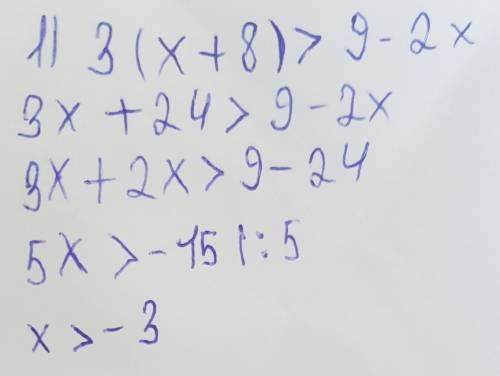 1) 3(x+8)>9-2x
3x+24>9-2x
3x+2x>9-24
5x>-15 |:5
x>-3